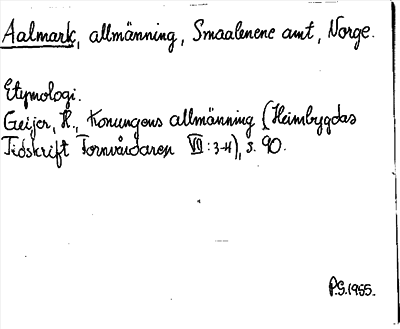 Aalmark, allmänning, Smaalenene amt, Norge.
Etymologi.
Geijer, H., Konungens allmänning (Heimbygdas
Tidskrift Fornvårdaren VII:3-4), s. 90.
P.G.1955.